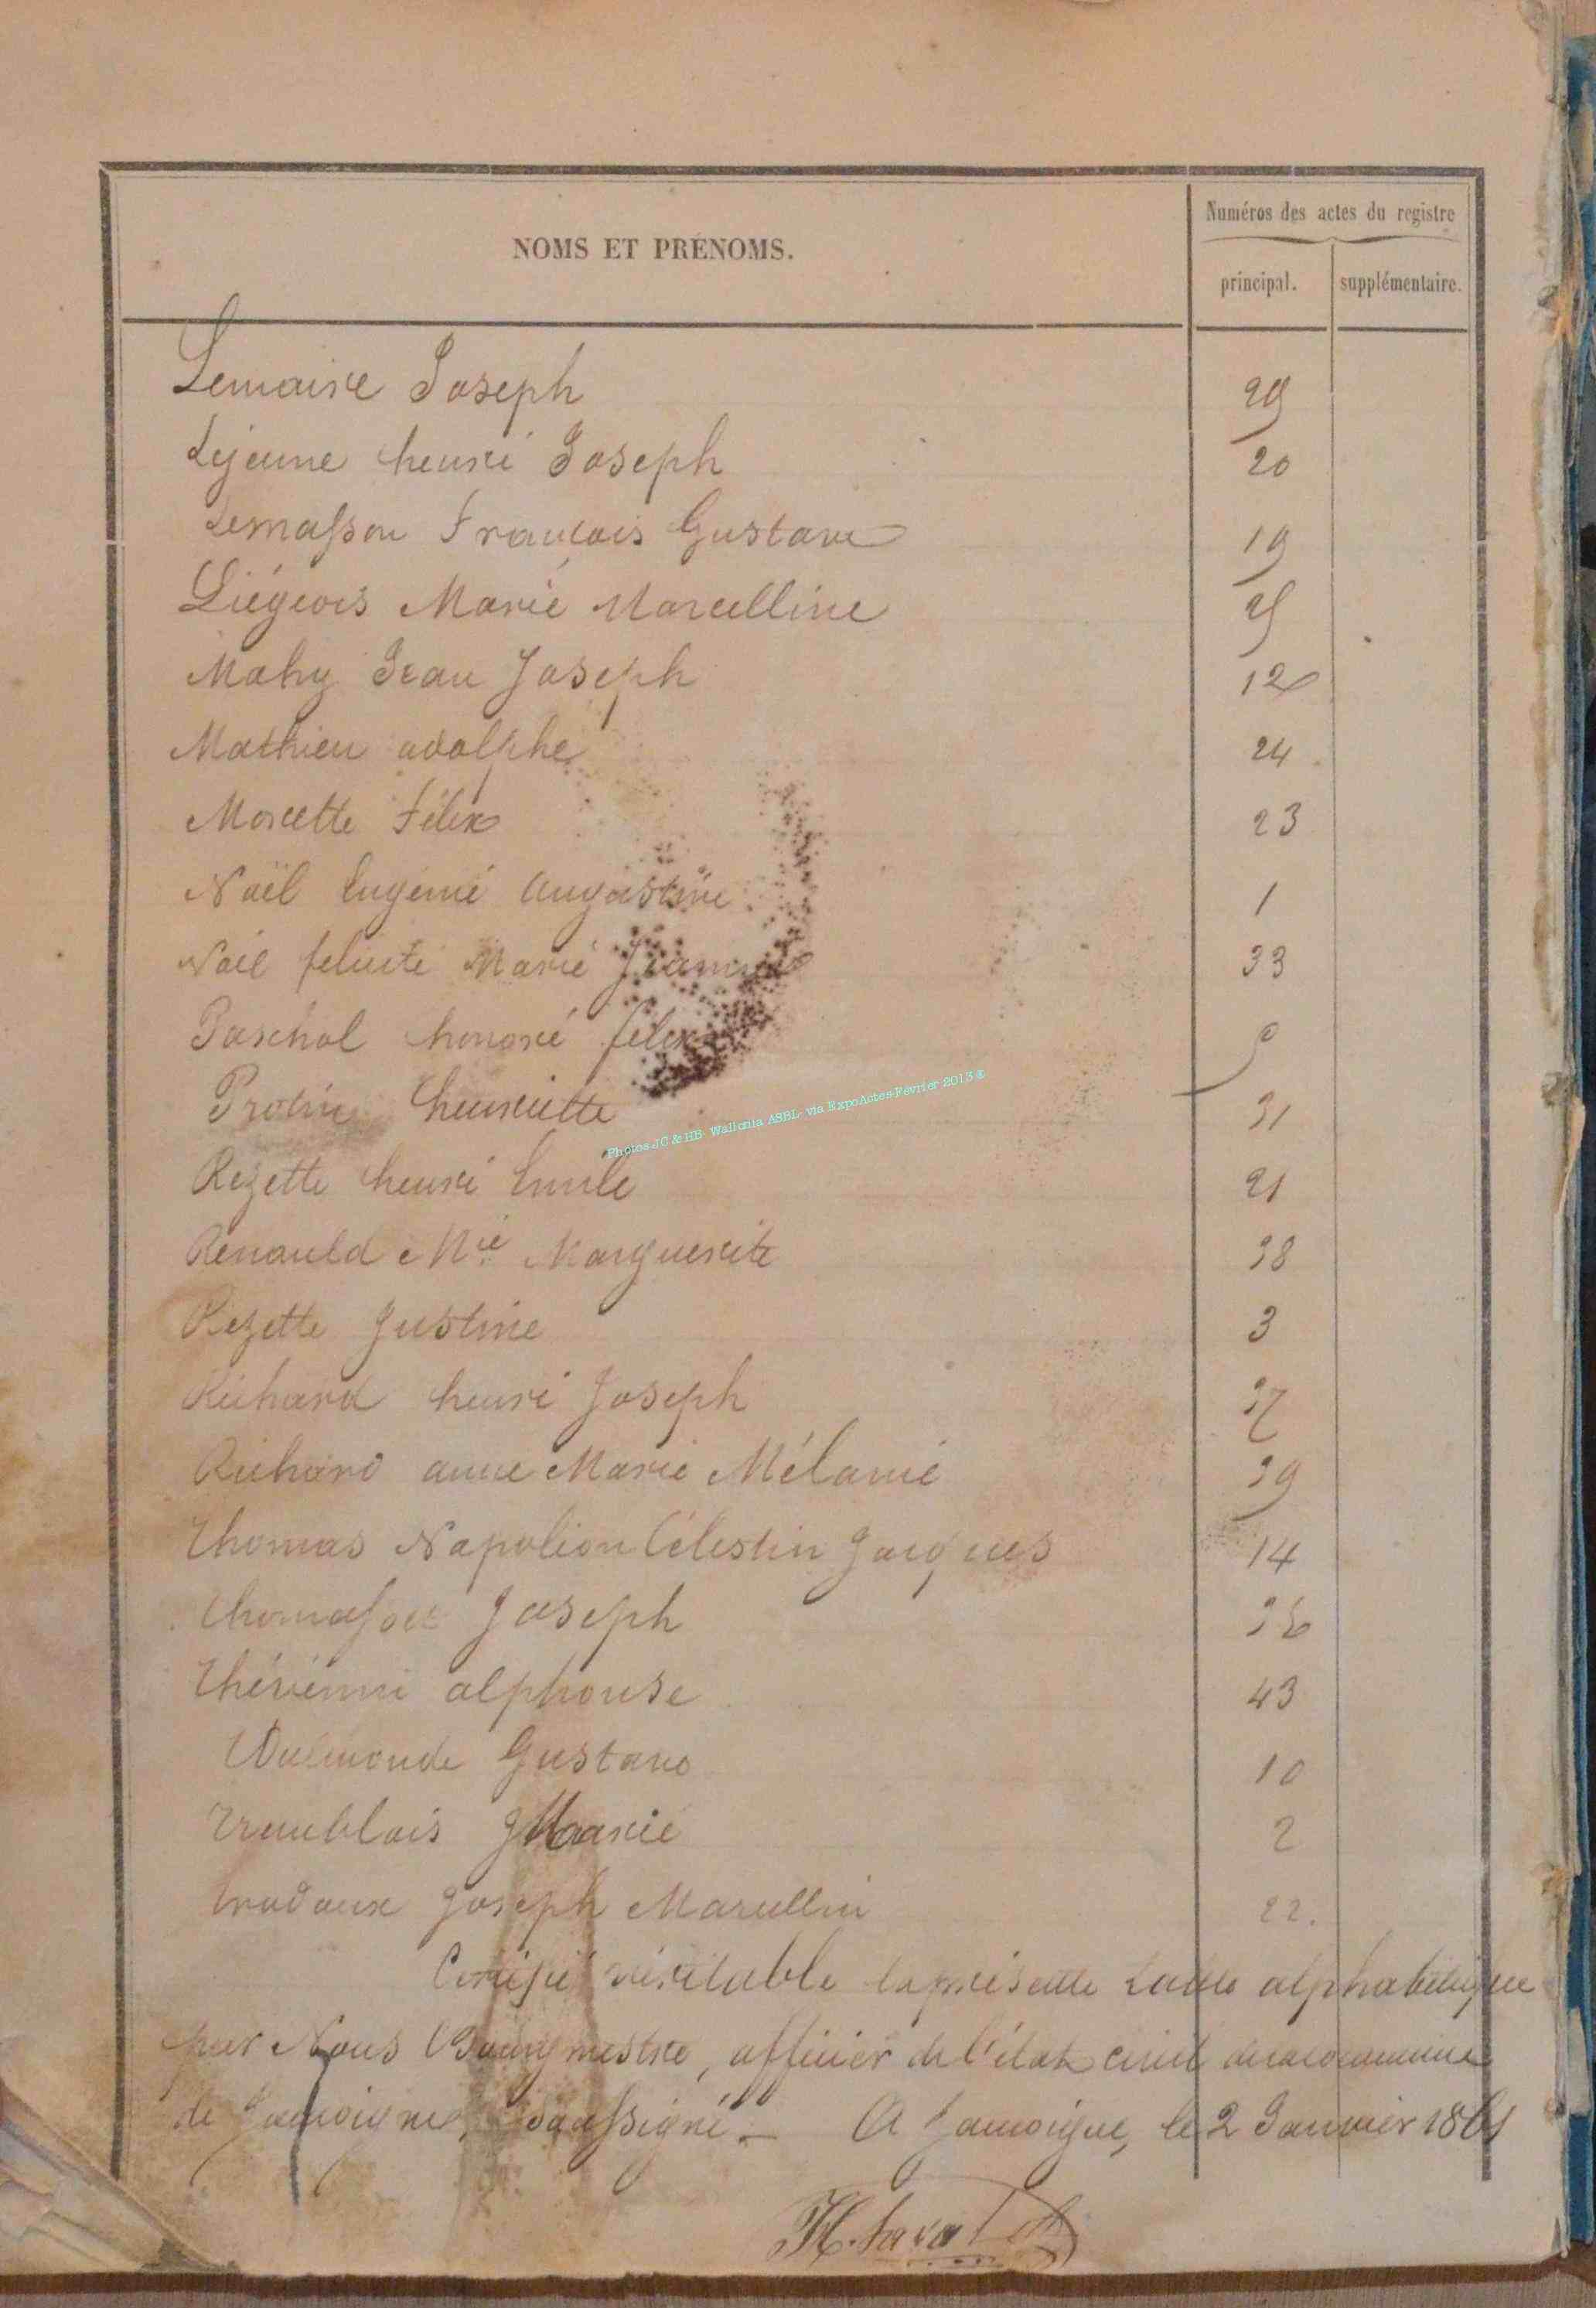 Numéros des actes du registre
NOMS ET PRÉNOMS.
principal. supplémentaire.
Lemaire Joseph 29
Lejeune henri Joseph 20
Lemasson François Gustave 19
Liégeois Marie Marcelline 25
Mahy Jean Joseph 12
Mathieu adolphe 24
Morette Félix 23
Noël Eugénie Augustine 1
Noël felicité Marie 33
Paschal honoré felix 9
henriette 31
Rezette henri Emile 21
Renauld Mie Marguerite 38
Rezette Justine 3
Richard henri Joseph 37
Richard anne Marie Mélanie 39
Thomas Napoléon Célestin Jacques 14
Thomasson Joseph
alphonse 43
Gustave 10
Tremblais Marie 2
Joseph Marcellin 22.
Certifié véritable la présente table alphabétique
par Nous Bourgmestre, officier de l'état civil de la commune
de Jamoigne, soussigné. A Jamoigne, le 2 Janvier 1861
Photos JC & HB- Wallonia ASBL- via ExpoActes-Février 2013 ®